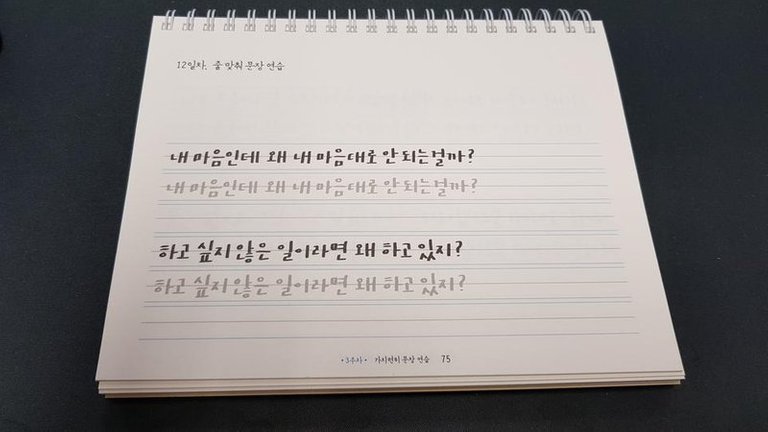 12일차. 줄 맞춰 문장 연습
내 마음인데 왜 내 마음대로 안 되는걸까?
내 마음인데 왜 내 마음대로 안 되는걸까?
하고 싶지 않은 일이라면 왜 하고 있지?
하고 싶지 않은 일이라면 왜 하고 있지?
•3주차• 가지런히 문장 연습 75